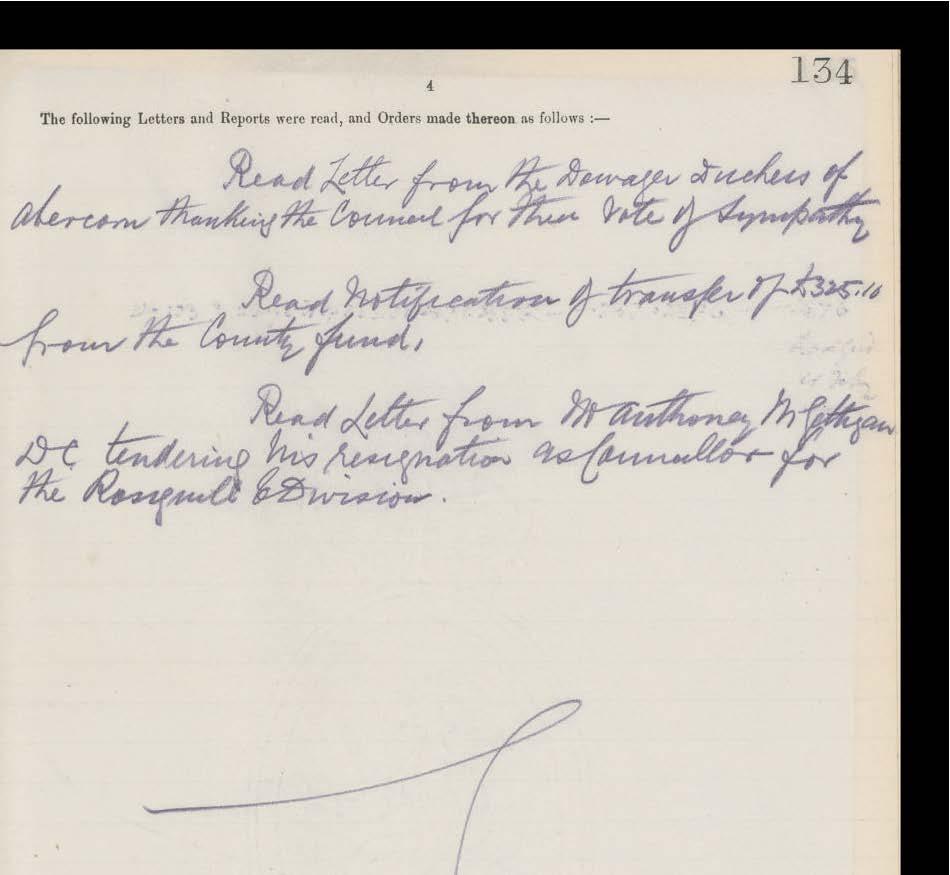 134
4
The following Letters and Reports were read, and Orders made thereon as follows :—
Read Letter from the Dowager Duchess of
Abercorn thanking the Council for their Vote of Sympathy
Read Notification of transfer of £325.10
from the County fund.
Read Letter from Mr Anthoney McGettigan
DC tendering his resignation as Councillor for
the Rosguill E Division.